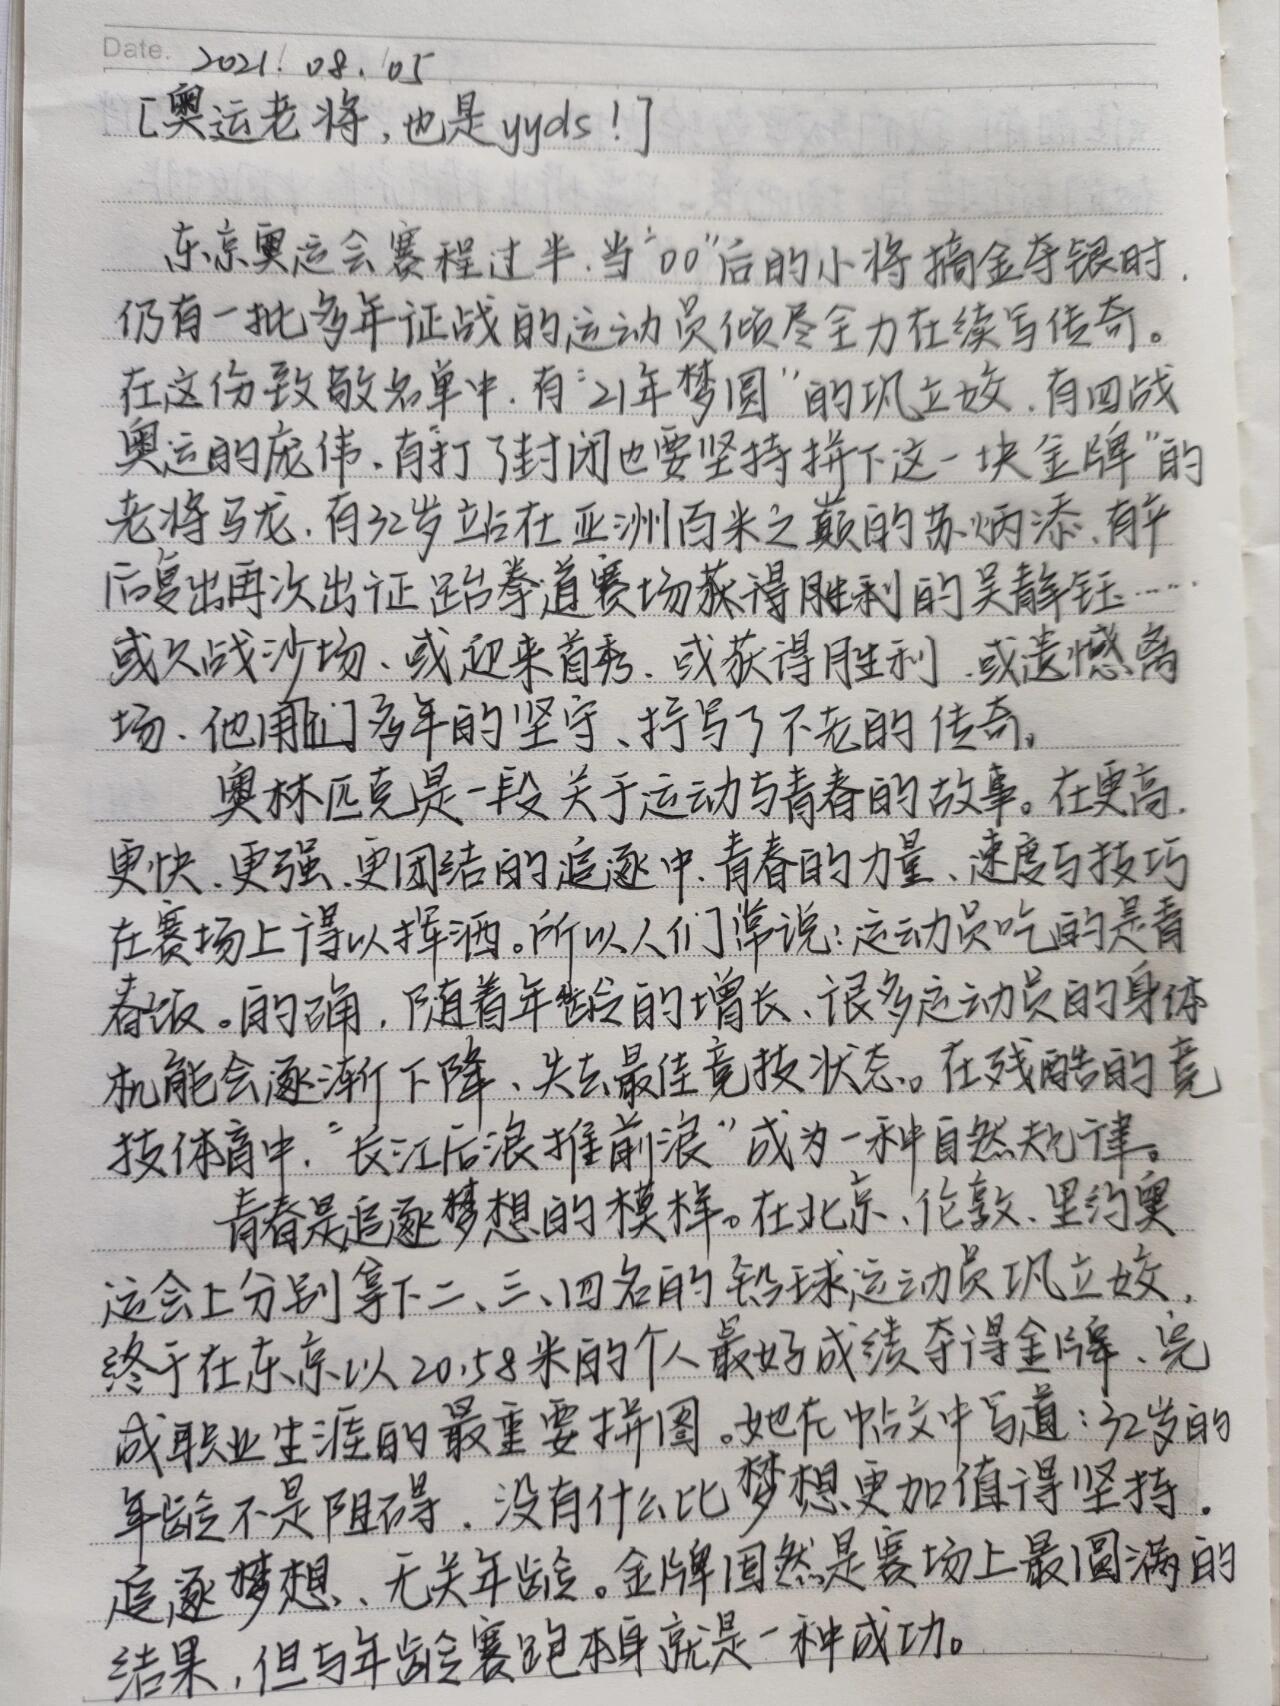 Date. 2021.08.05
[奥运老将，也是yyds！]
东京奥运会赛程过半，当"00"后的小将摘金夺银时，
仍有一批多年证战的运动员倾尽全力在续写传奇。
在这份致敬名单中，有"21年梦圆"的巩立姣，有四战
奥运的庞伟，有"打了封闭也要坚持拼下这一块金牌"的
老将马龙，有32岁站在亚洲百米之巅的苏炳添，有午
后复出再次出证跆拳道赛场获得胜利的吴静钰……
或久战沙场、或迎来首秀、或获得胜利、或遗憾离
场、他们用多年的坚守、抒写了不老的传奇。
奥林匹克是一段关于运动与青春的故事。在更高、
更快、更强、更团结的追逐中，青春的力量、速度与技巧
在赛场上得以挥洒。所以人们常说：运动员吃的是青
春饭。的确，随着年龄的增长、很多运动员的身体
机能会逐渐下降、失去最佳竞技状态。在残酷的竞
技体育中，"长江后浪推前浪"成为一种自然规律。
青春是追逐梦想的模样。在北京、伦敦、里约奥
运会上分别拿下二、三、四名的铅球运动员巩立姣，
终于在东京以20.58米的个人最好成绩夺得金牌、完
成职业生涯的最重要拼图。她在帖文中写道：32岁的
年龄不是阻碍，没有什么比梦想更加值得坚持，
追逐梦想、无关年龄。金牌固然是赛场上最圆满的
结果，但与年龄赛跑本身就是一种成功。